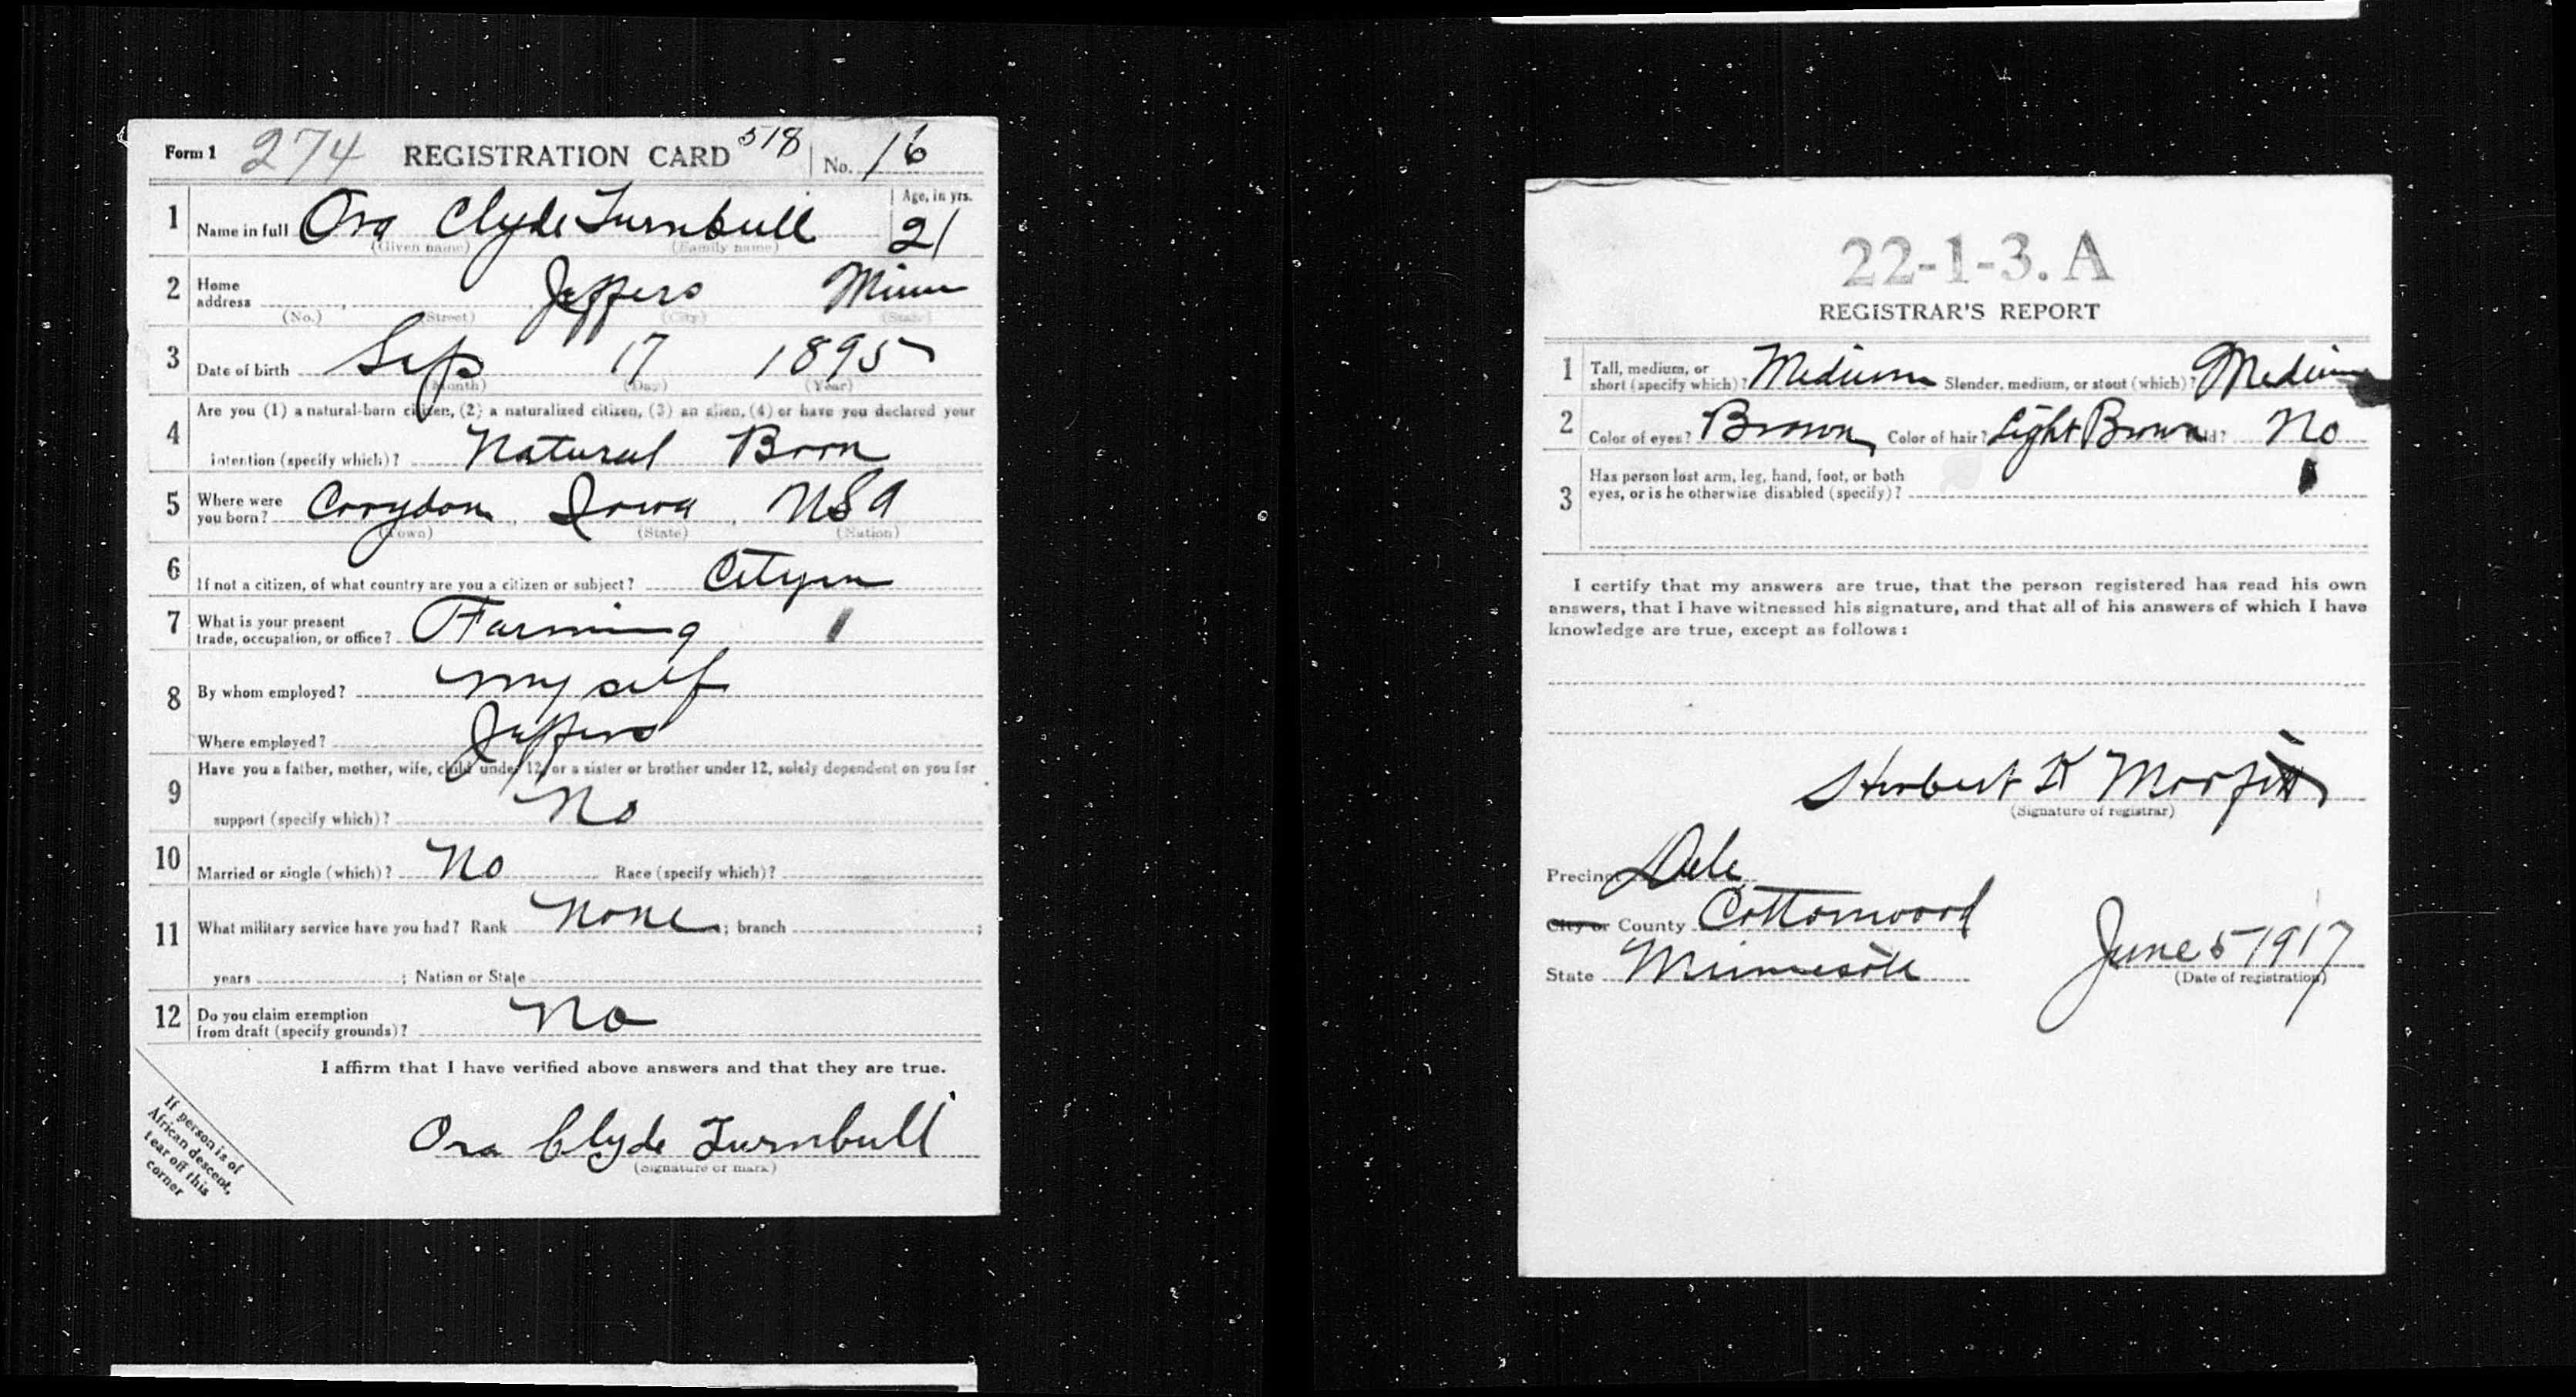 Form 1 274 REGISTRATION CARD 518 No. 16
1 Name in full Ora Clyde Turnbull Age, in yrs. 21
(Given name) (Family name)
2 Home address Jeffers Minn
(No.) (Street) (City) (State)
3 Date of birth Sep 17 1895
(Month) (Day) (Year)
4 Are you (1) a natural-born citizen, (2) a naturalized citizen, (3) an alien, (4) or have you declared your
intention (specify which)? Natural Born
5 Where were you born? Corydon, Iowa, USA
(Town) (State) (Nation)
6 If not a citizen, of what country are you a citizen or subject? Citizen
7 What is your present trade, occupation, or office? Farming
8 By whom employed? my self
Where employed? Jeffers
9 Have you a father, mother, wife, child under 12, or a sister or brother under 12, solely dependent on you for
support (specify which)? No
10 Married or single (which)? No Race (specify which)?
11 What military service have you had? Rank None; branch ;
years ; Nation or State
12 Do you claim exemption from draft (specify grounds)? No
I affirm that I have verified above answers and that they are true.
Ora Clyde Turnbull
(Signature or mark)
If person is of
African descent,
tear off this
corner
22-1-3. A
REGISTRAR'S REPORT
1 Tall, medium, or short (specify which)? Medium Slender, medium, or stout (which)? Medium
2 Color of eyes? Brown Color of hair? Light Brown Bald? No
3 Has person lost arm, leg, hand, foot, or both
eyes, or is he otherwise disabled (specify)?
I certify that my answers are true, that the person registered has read his own
answers, that I have witnessed his signature, and that all of his answers of which I have
knowledge are true, except as follows:
Herbert K Morfitt
(Signature of registrar)
Precinct Dale
City or County Cottonwood
State Minnesota June 5 1917
(Date of registration)